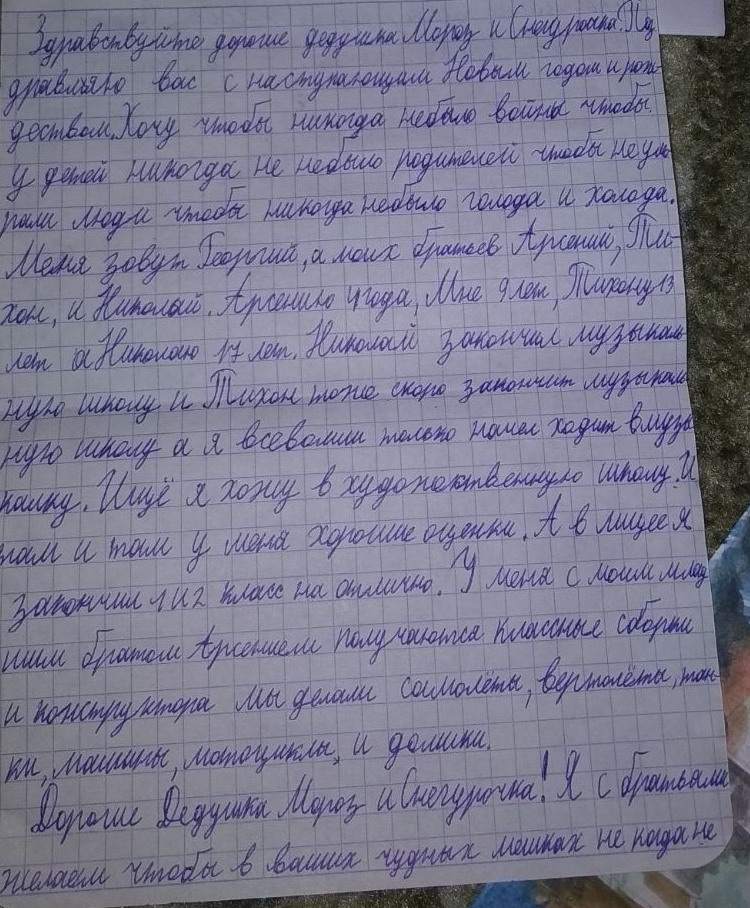 Здравствуйте дорогие дедушка Мороз и Снегурочка. Поз
дравляю вас с наступающим Новым годом и рож
деством. Хочу чтобы никогда небыло войны чтобы
у детей никогда не небыло родителей чтобы не уми
рали люди чтобы никогда небыло голода и холода.
Меня зовут Георгий, а моих братьев Арсений, Ти-
хон, и Николай. Арсению 4 года, Мне 9 лет, Тихону 13
лет а Николаю 17 лет. Николай закончил музыкаль
ную школу и Тихон тоже скоро закончит музыкаль
ную школу а я всеволши только начел ходит в музы
калку. Ищё я хожу в художоктвенную школу. И
там и там у меня хорошие оценки. А в лицее я
закончил 1 и 2 класс на отлично. У меня с моим млад
шим братом Арсением получаются классные сборки
и конструктора мы делали самолёты, вертолёты, тан-
ки, машины, мотоциклы, и домики.
Дорогие Дедушка Мороз и Снегурочка! Я с братьями
желаем чтобы в ваших чудных мешках не когда не